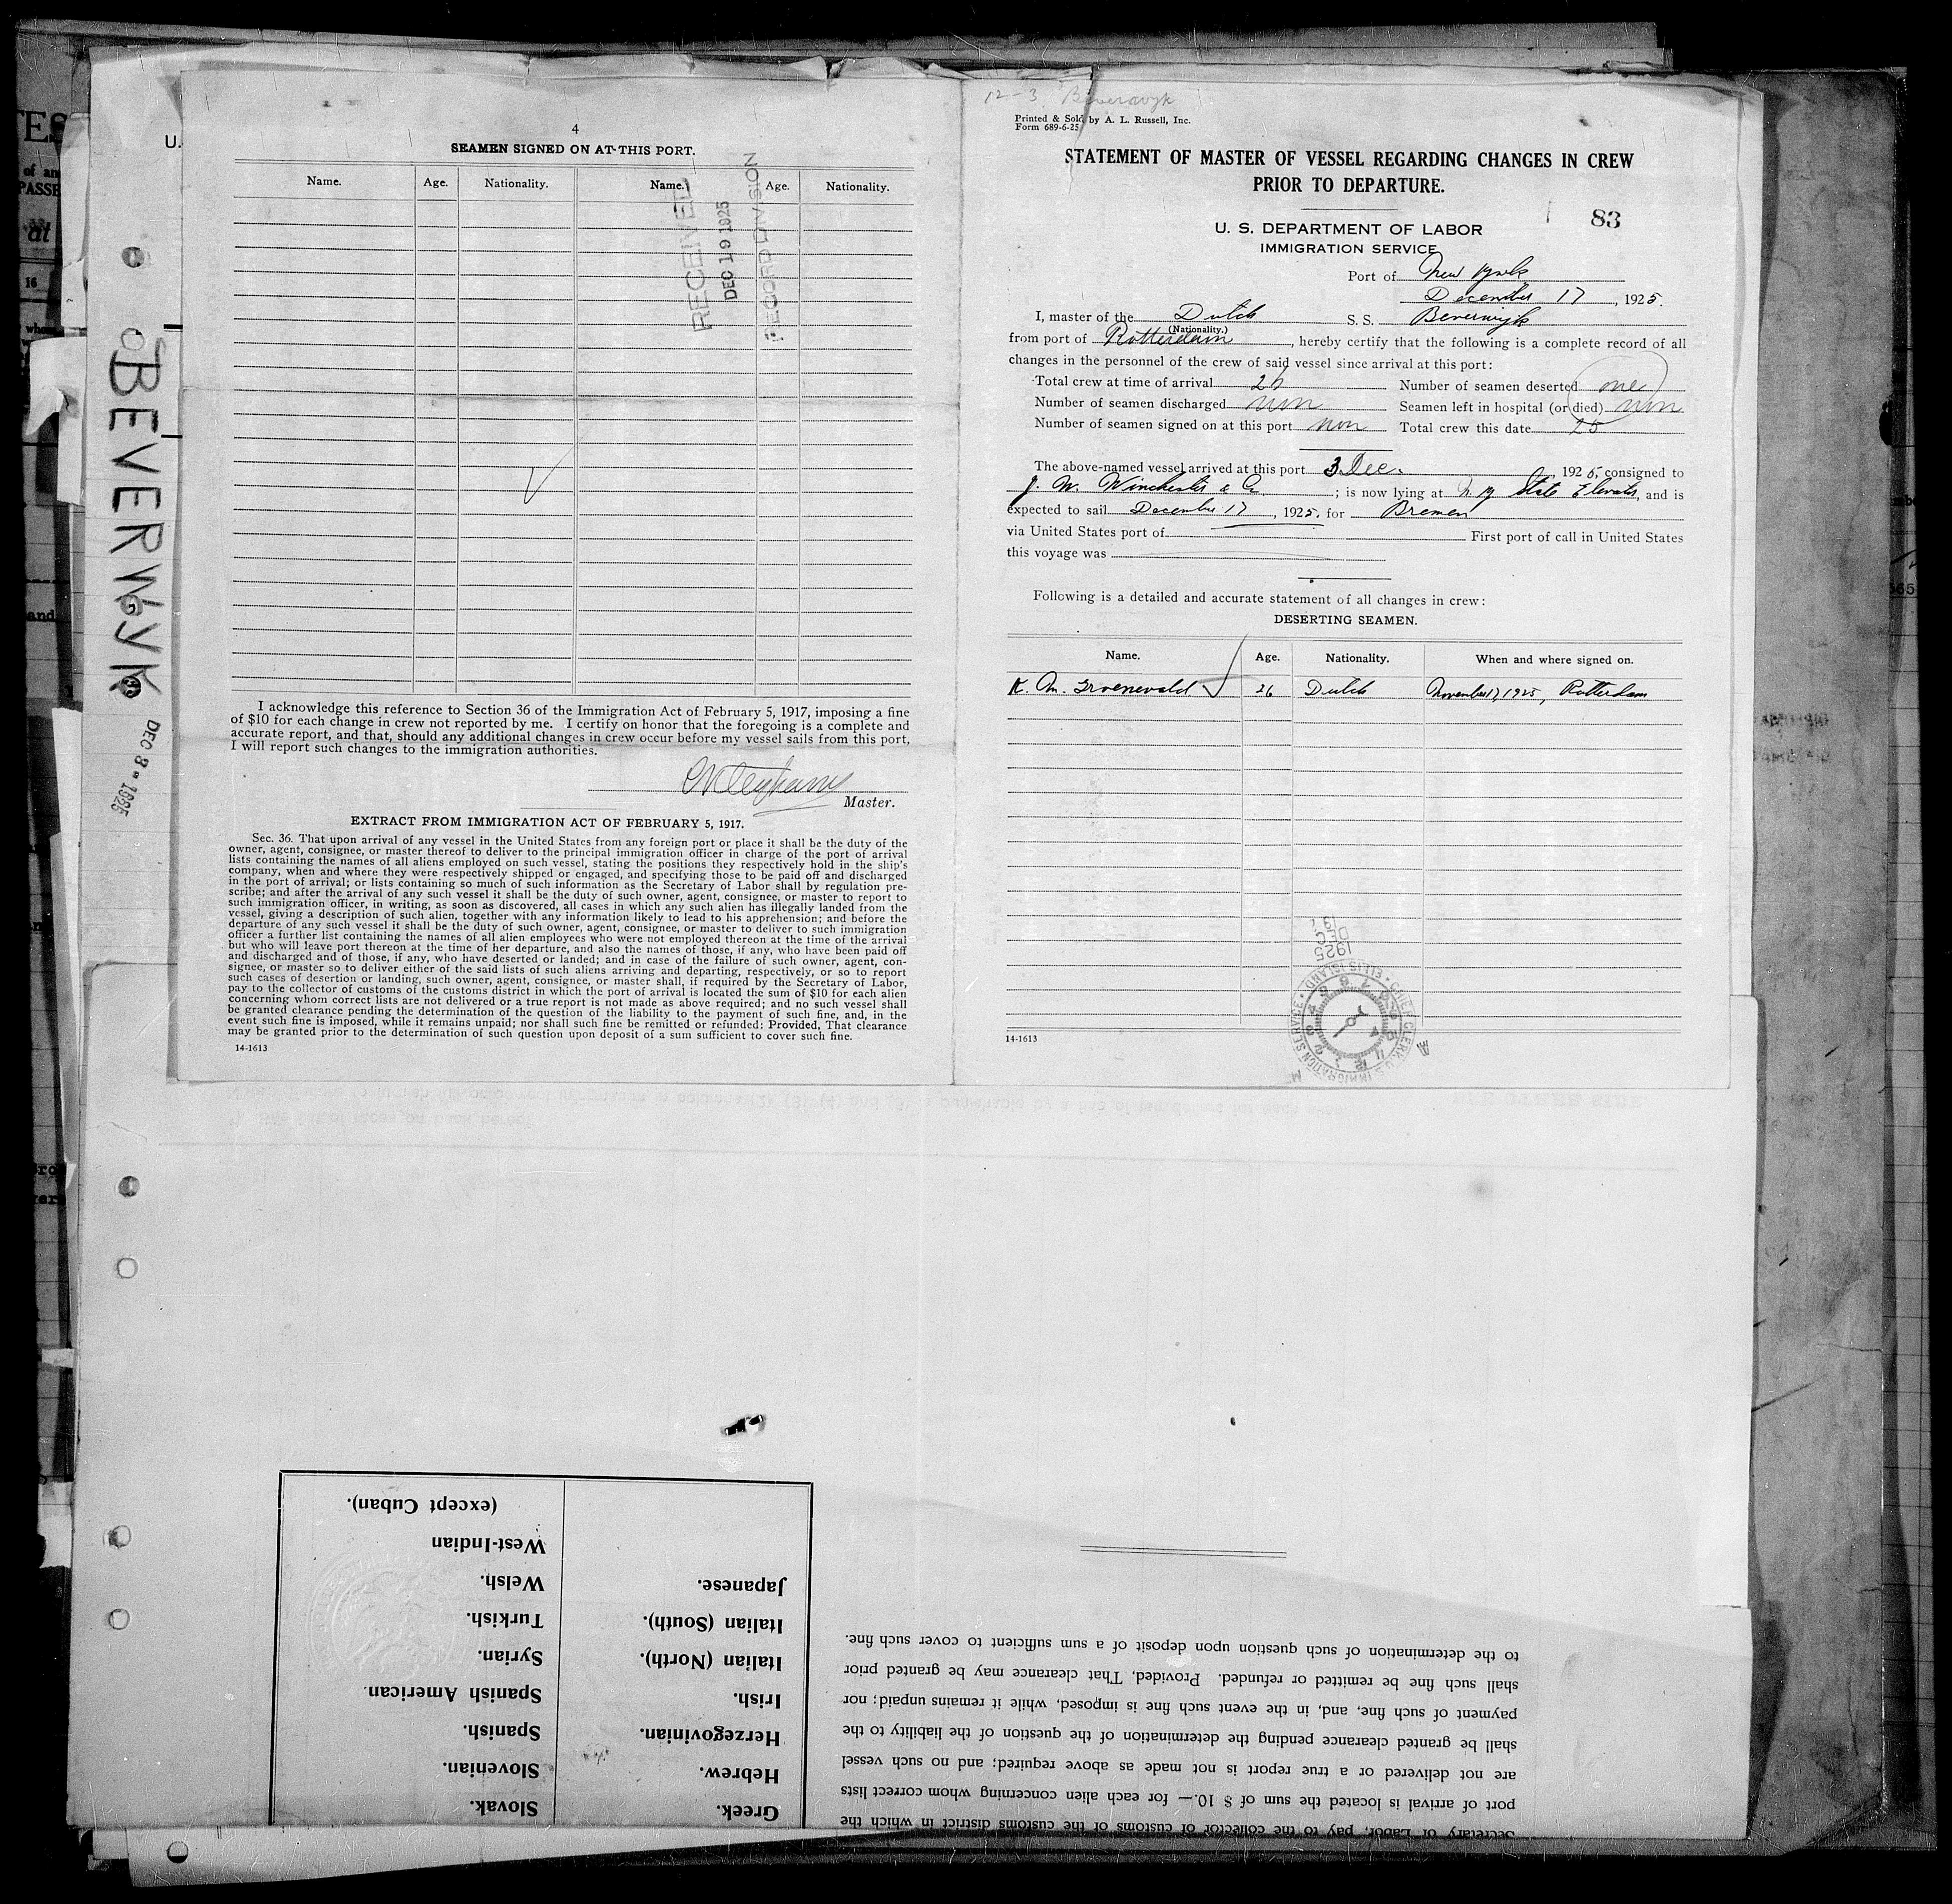 4
SEAMEN SIGNED ON AT THIS PORT.
Name. Age. Nationality. Name. Age. Nationality.
RECEIVED
DEC 19 1925
RECORD DIVISION
I acknowledge this reference to Section 36 of the Immigration Act of February 5, 1917, imposing a fine
of $10 for each change in crew not reported by me. I certify on honor that the foregoing is a complete and
accurate report, and that, should any additional changes in crew occur before my vessel sails from this port,
I will report such changes to the immigration authorities.
Master.
EXTRACT FROM IMMIGRATION ACT OF FEBRUARY 5, 1917.
Sec. 36. That upon arrival of any vessel in the United States from any foreign port or place it shall be the duty of the
owner, agent, consignee, or master thereof to deliver to the principal immigration officer in charge of the port of arrival
lists containing the names of all aliens employed on such vessel, stating the positions they respectively hold in the ship's
company, when and where they were respectively shipped or engaged, and specifying those to be paid off and discharged
in the port of arrival; or lists containing so much of such information as the Secretary of Labor shall by regulation pre-
scribe; and after the arrival of any such vessel it shall be the duty of such owner, agent, consignee, or master to report to
such immigration officer, in writing, as soon as discovered, all cases in which any such alien has illegally landed from the
vessel, giving a description of such alien, together with any information likely to lead to his apprehension; and before the
departure of any such vessel it shall be the duty of such owner, agent, consignee, or master to deliver to such immigration
officer a further list containing the names of all alien employees who were not employed thereon at the time of the arrival
but who will leave port thereon at the time of her departure, and also the names of those, if any, who have been paid off
and discharged and of those, if any, who have deserted or landed; and in case of the failure of such owner, agent, con-
signee, or master so to deliver either of the said lists of such aliens arriving and departing, respectively, or so to report
such cases of desertion or landing, such owner, agent, consignee, or master shall, if required by the Secretary of Labor,
pay to the collector of customs of the customs district in which the port of arrival is located the sum of $10 for each alien
concerning whom correct lists are not delivered or a true report is not made as above required; and no such vessel shall
be granted clearance pending the determination of the question of the liability to the payment of such fine, and, in the
event such fine is imposed, while it remains unpaid; nor shall such fine be remitted or refunded: Provided, That clearance
may be granted prior to the determination of such question upon deposit of a sum sufficient to cover such fine.
14-1613
BEVERWYK
DEC 8 - 1925
12-3 Beverwyk
Printed & Sold by A. L. Russell, Inc.
Form 689-6-25
STATEMENT OF MASTER OF VESSEL REGARDING CHANGES IN CREW
PRIOR TO DEPARTURE.
83
U. S. DEPARTMENT OF LABOR
IMMIGRATION SERVICE
Port of New York
December 17, 1925.
I, master of the Dutch S. S. Beverwijk
(Nationality.)
from port of Rotterdam, hereby certify that the following is a complete record of all
changes in the personnel of the crew of said vessel since arrival at this port:
Total crew at time of arrival 26 Number of seamen deserted one
Number of seamen discharged non Seamen left in hospital (or died) non
Number of seamen signed on at this port non Total crew this date 25
The above-named vessel arrived at this port 3 Dec. , 1925, consigned to
J. W. Winchester & Co ; is now lying at N Y State Elevator, and is
expected to sail December 17, 1925, for Bremen
via United States port of First port of call in United States
this voyage was
Following is a detailed and accurate statement of all changes in crew:
DESERTING SEAMEN.
Name. Age. Nationality. When and where signed on.
K. M. Groenevold 26 Dutch November 17, 1925, Rotterdam
1925
DEC
CHIEF CLERK U.S. IMMIGRATION SERVICE ELLIS ISLAND
14-1613
Secretary of Labor, pay to the collector of customs of the customs district in which the
port of arrival is located the sum of $ 10.— for each alien concerning whom correct lists
are not delivered or a true report is not made as above required; and no such vessel
shall be granted clearance pending the determination of the question of the liability to the
payment of such fine, and, in the event such fine is imposed, while it remains unpaid; nor
shall such fine be remitted or refunded. Provided, That clearance may be granted prior
to the determination of such question upon deposit of a sum sufficient to cover such fine.
Greek. Slovak.
Hebrew. Slovenian.
Herzegovinian. Spanish.
Irish. Spanish American.
Italian (North). Syrian.
Italian (South). Turkish.
Japanese. Welsh.
West-Indian
(except Cuban).